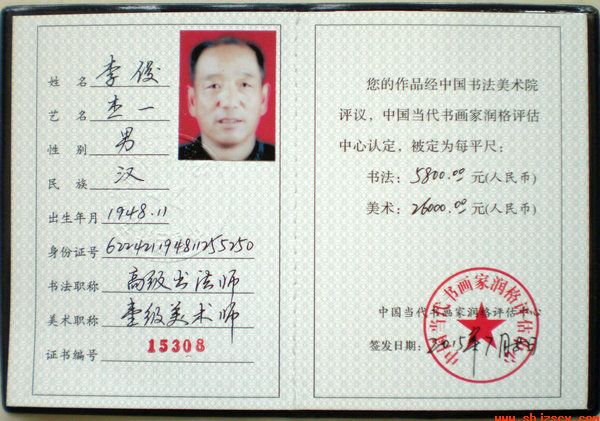 姓 名 李俊
艺 名 杰一
性 别 男
民 族 汉
出生年月 1948.11
身份证号 622421194811255250
书法职称 高级书法师
美术职称 壹级美术师
证书编号 15308
您的作品经中国书法美术院
评议，中国当代书画家润格评估
中心认定，被定为每平尺：
书法：5800.00 元(人民币)
美术：26000.00 元(人民币)
中国当代书画家润格评估中心
签发日期：2015年1月8日
中国当代书画家润格评估中心
www.shizscx.com